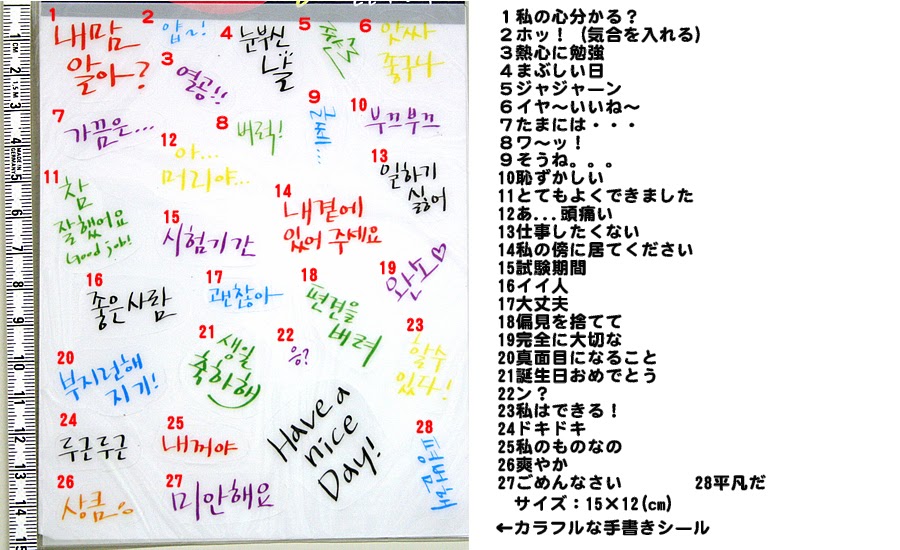 1
내맘
알아?
2
얍~!
3
열공!!
4
눈부신
날
5
6
앗싸
좋구나
7
가끔은...
8
버럭!
9
그래...
10
부끄부끄
11
참
잘했어요
Good job!
12
아...
머리야...
13
일하기
싫어
14
내곁에
있어 주세요
15
시험기간
16
좋은사람
17
괜찮아
18
편견을
버려
19
완소♡
20
부지런해
지기!
21
생일
축하해
22
응?
23
할수
있다!
24
두근두근
25
내꺼야
26
상큼
27
미안해요
Have a
nice
Day!
28
평범해
1私の心分かる？
2ホッ！（気合を入れる）
3熱心に勉強
4まぶしい日
5ジャジャーン
6イヤ～いいね～
7たまには・・・
8ワ～ッ！
9そうね。。。
10恥ずかしい
11とてもよくできました
12あ...頭痛い
13仕事したくない
14私の傍に居てください
15試験期間
16イイ人
17大丈夫
18偏見を捨てて
19完全に大切な
20真面目になること
21誕生日おめでとう
22ン？
23私はできる！
24ドキドキ
25私のものなの
26爽やか
27ごめんなさい 28平凡だ
サイズ：15×12(cm)
←カラフルな手書きシール